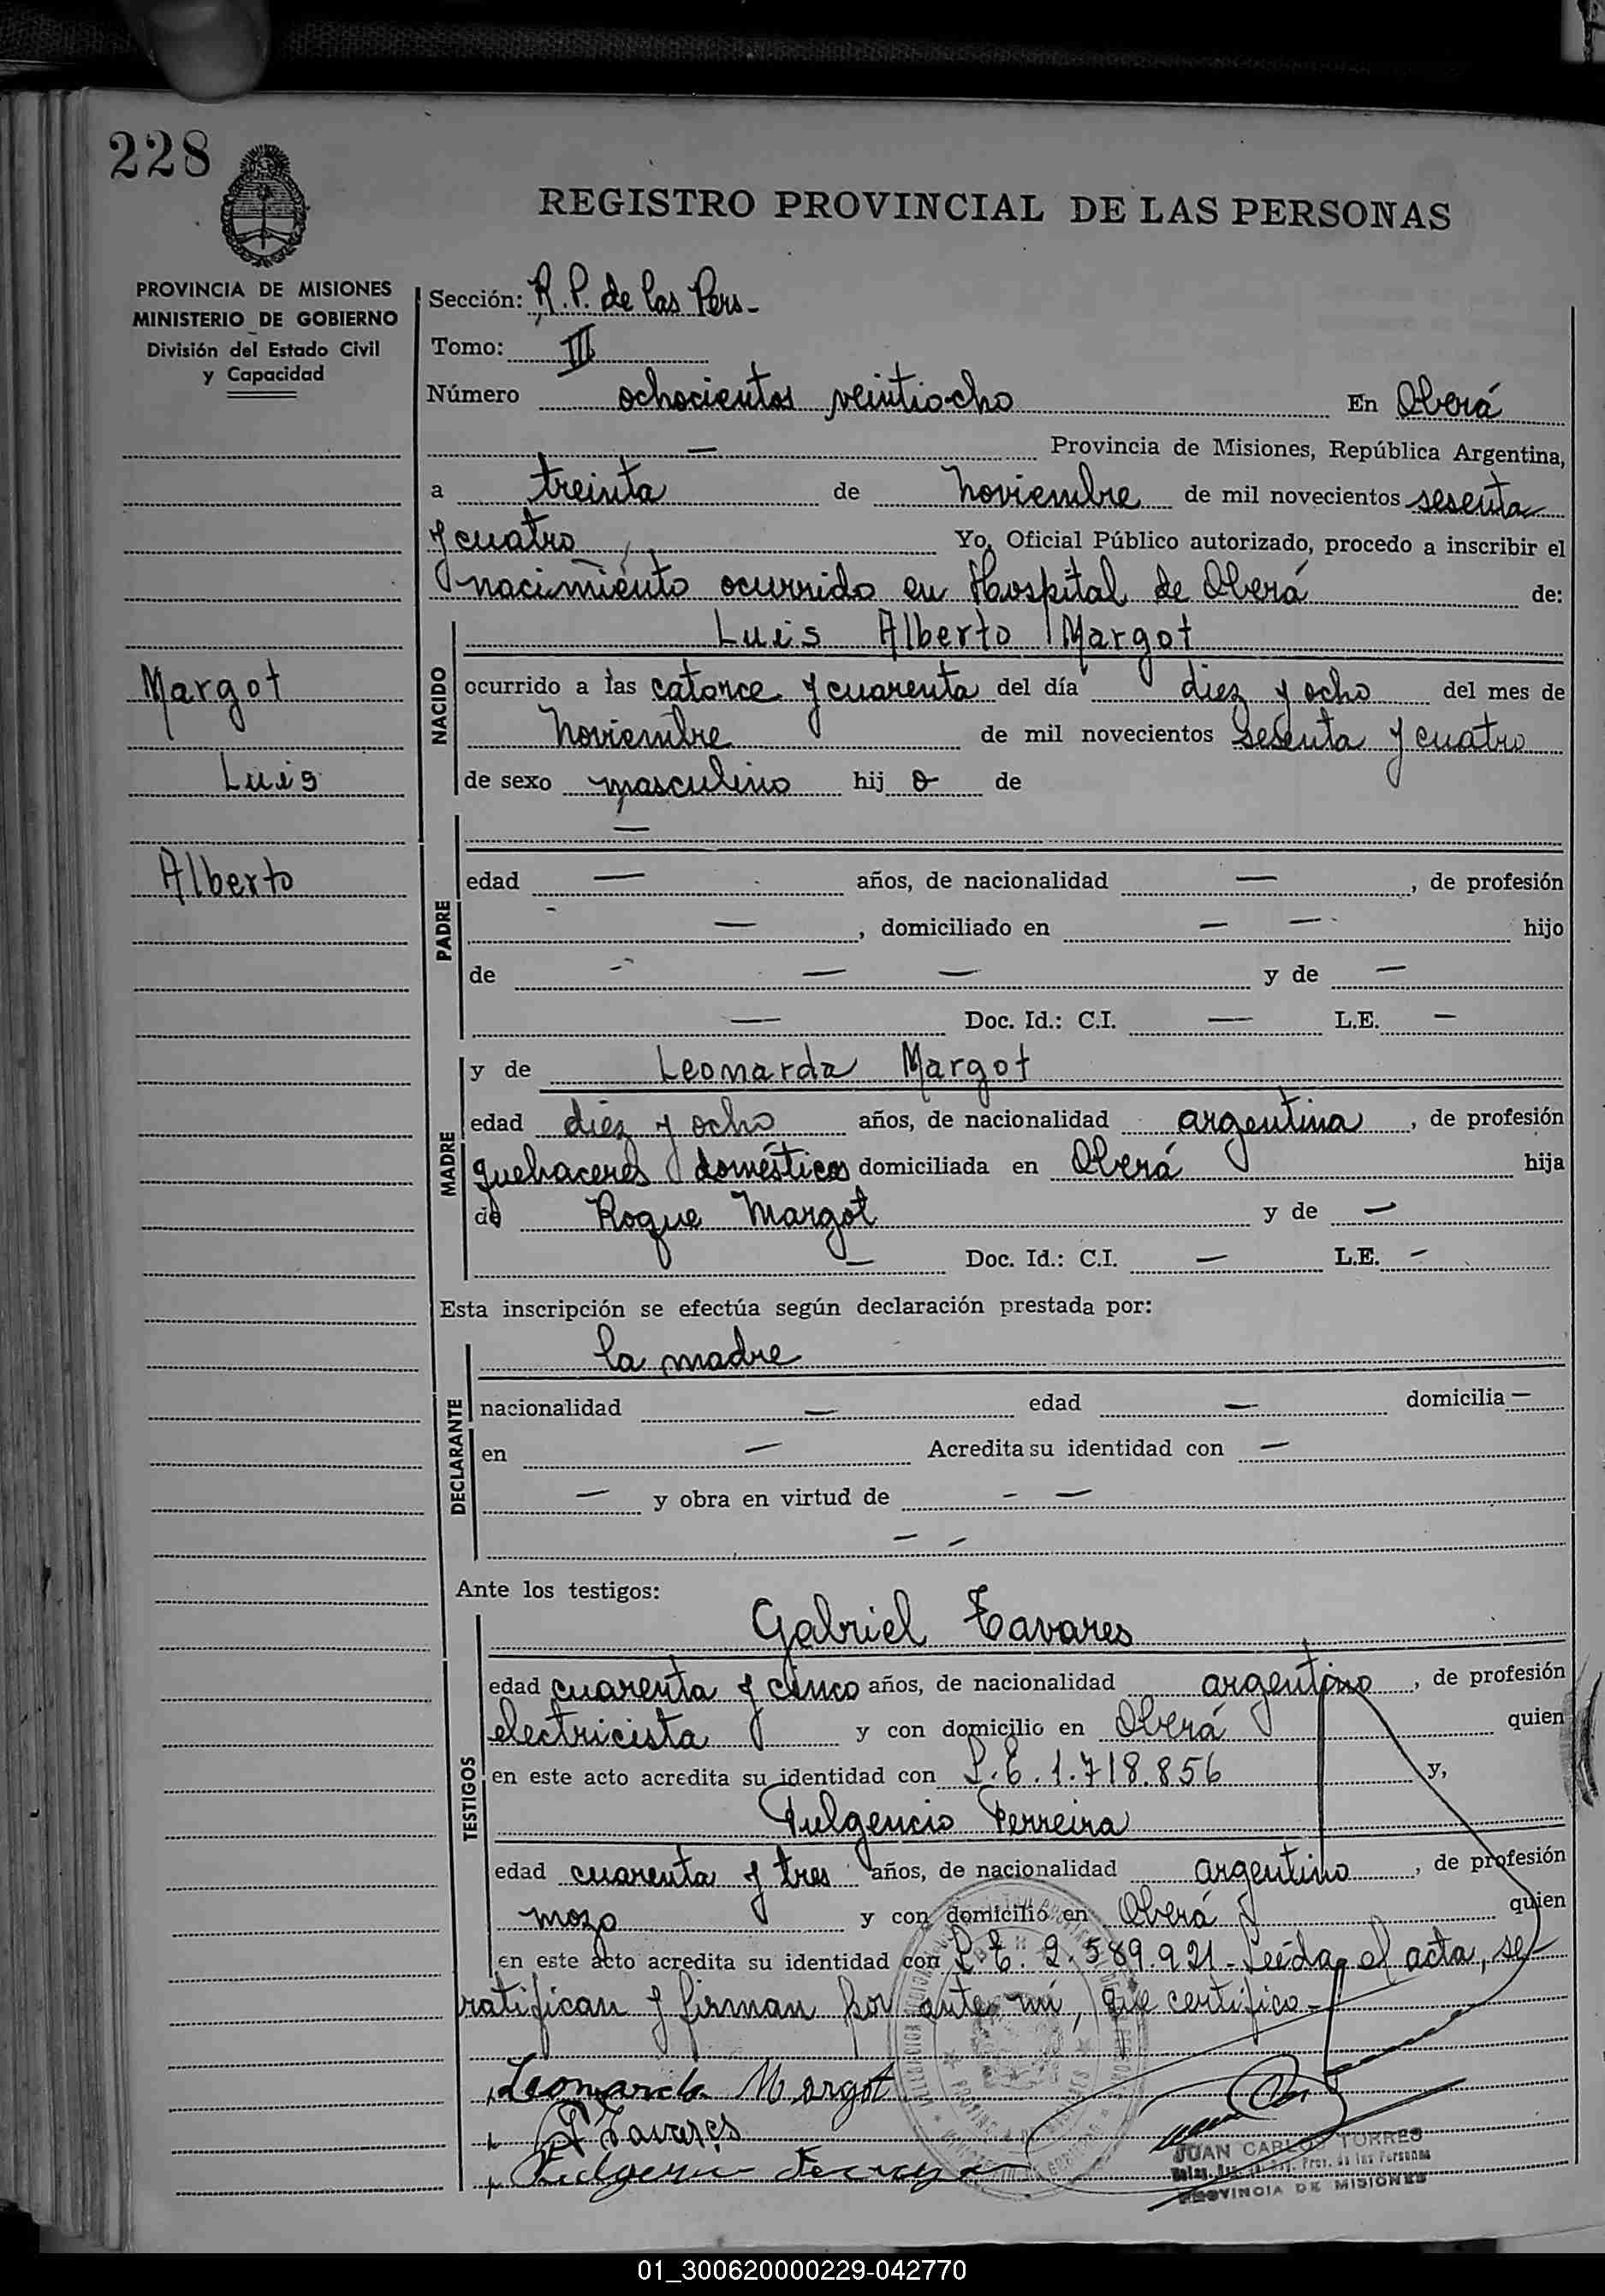 228
REGISTRO PROVINCIAL DE LAS PERSONAS
PROVINCIA DE MISIONES
MINISTERIO DE GOBIERNO
División del Estado Civil
y Capacidad
Sección: R.P. de las Pers-
Tomo: III
Número ochocientos veintiocho En Oberá
— Provincia de Misiones, República Argentina,
a treinta de Noviembre de mil novecientos sesenta
y cuatro Yo, Oficial Público autorizado, procedo a inscribir el
nacimiento ocurrido en Hospital de Oberá de:
Luis Alberto Margot
Margot
Luis
Alberto
NACIDO
ocurrido a las catorce y cuarenta del día diez y ocho del mes de
Noviembre de mil novecientos sesenta y cuatro
de sexo masculino hij o de
—
PADRE
edad — años, de nacionalidad —, de profesión
—, domiciliado en — — hijo
de — — — y de —
— Doc. Id.: C.I. — L.E. —
MADRE
y de Leonarda Margot
edad diez y ocho años, de nacionalidad argentina, de profesión
quehaceres domésticos domiciliada en Oberá hija
de Roque Margot y de —
— Doc. Id.: C.I. — L.E. —
Esta inscripción se efectúa según declaración prestada por:
DECLARANTE
la madre
nacionalidad — edad — domicilia —
en — Acredita su identidad con —
— y obra en virtud de — —
— —
Ante los testigos:
TESTIGOS
Gabriel Tavares
edad cuarenta y cinco años, de nacionalidad argentino, de profesión
electricista y con domicilio en Oberá quien
en este acto acredita su identidad con L.E. 1.718.856 y,
Fulgencio Ferreira
edad cuarenta y tres años, de nacionalidad argentino, de profesión
mozo y con domicilio en Oberá quien
en este acto acredita su identidad con L.E. 2.589.921- Leída el acta, se
ratifican y firman por ante mí, que certifico-
Leonarda Margot
Tavares
JUAN CARLOS TORRES
Prov. de las Personas
PROVINCIA DE MISIONES
01_300620000229-042770